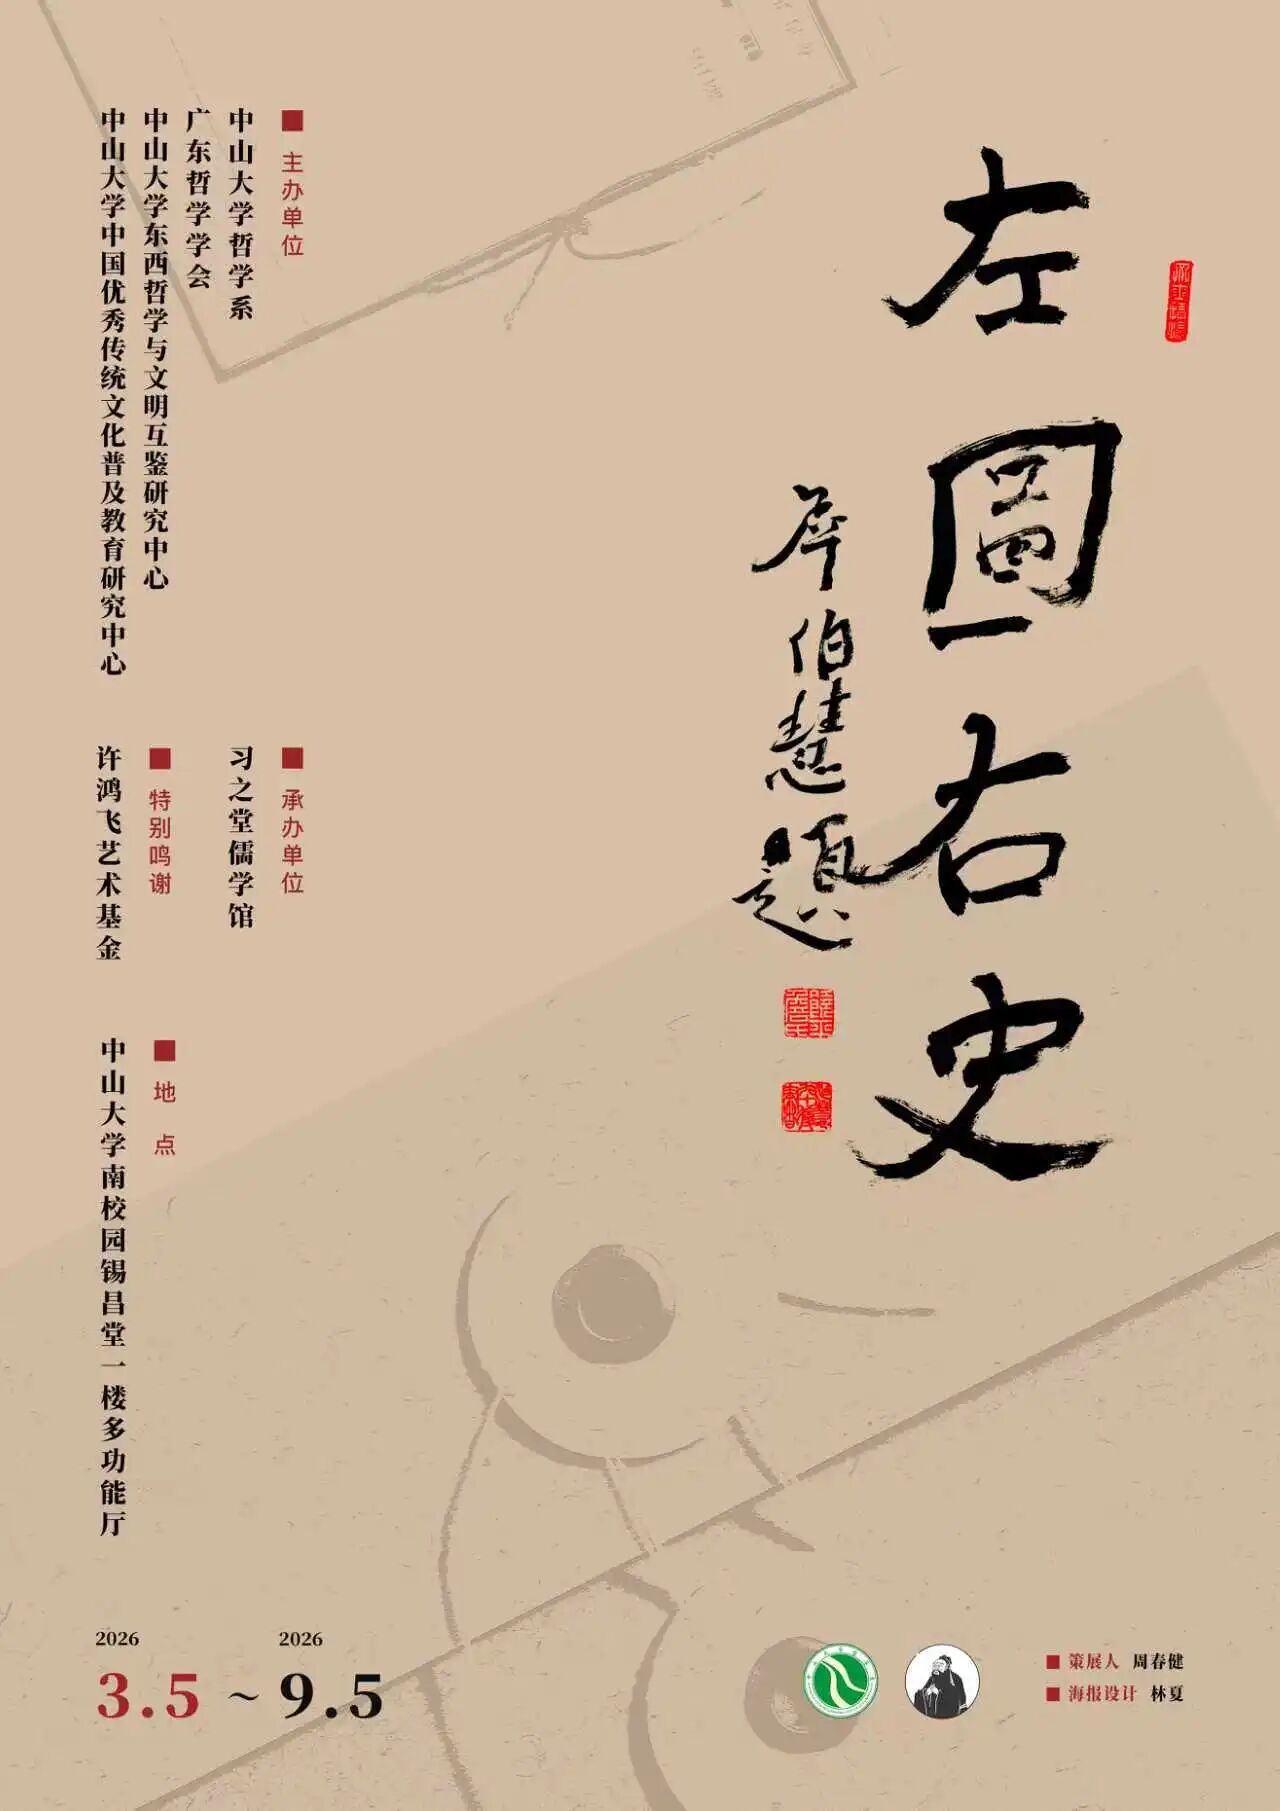 左圖右史
岑伯慧題
主办单位
中山大学哲学系
广东哲学学会
中山大学东西哲学与文明互鉴研究中心
中山大学中国优秀传统文化普及教育研究中心
承办单位
习之堂儒学馆
特别鸣谢
许鸿飞艺术基金
地点
中山大学南校园锡昌堂一楼多功能厅
2026
3.5
~
2026
9.5
策展人 周春健
海报设计 林夏